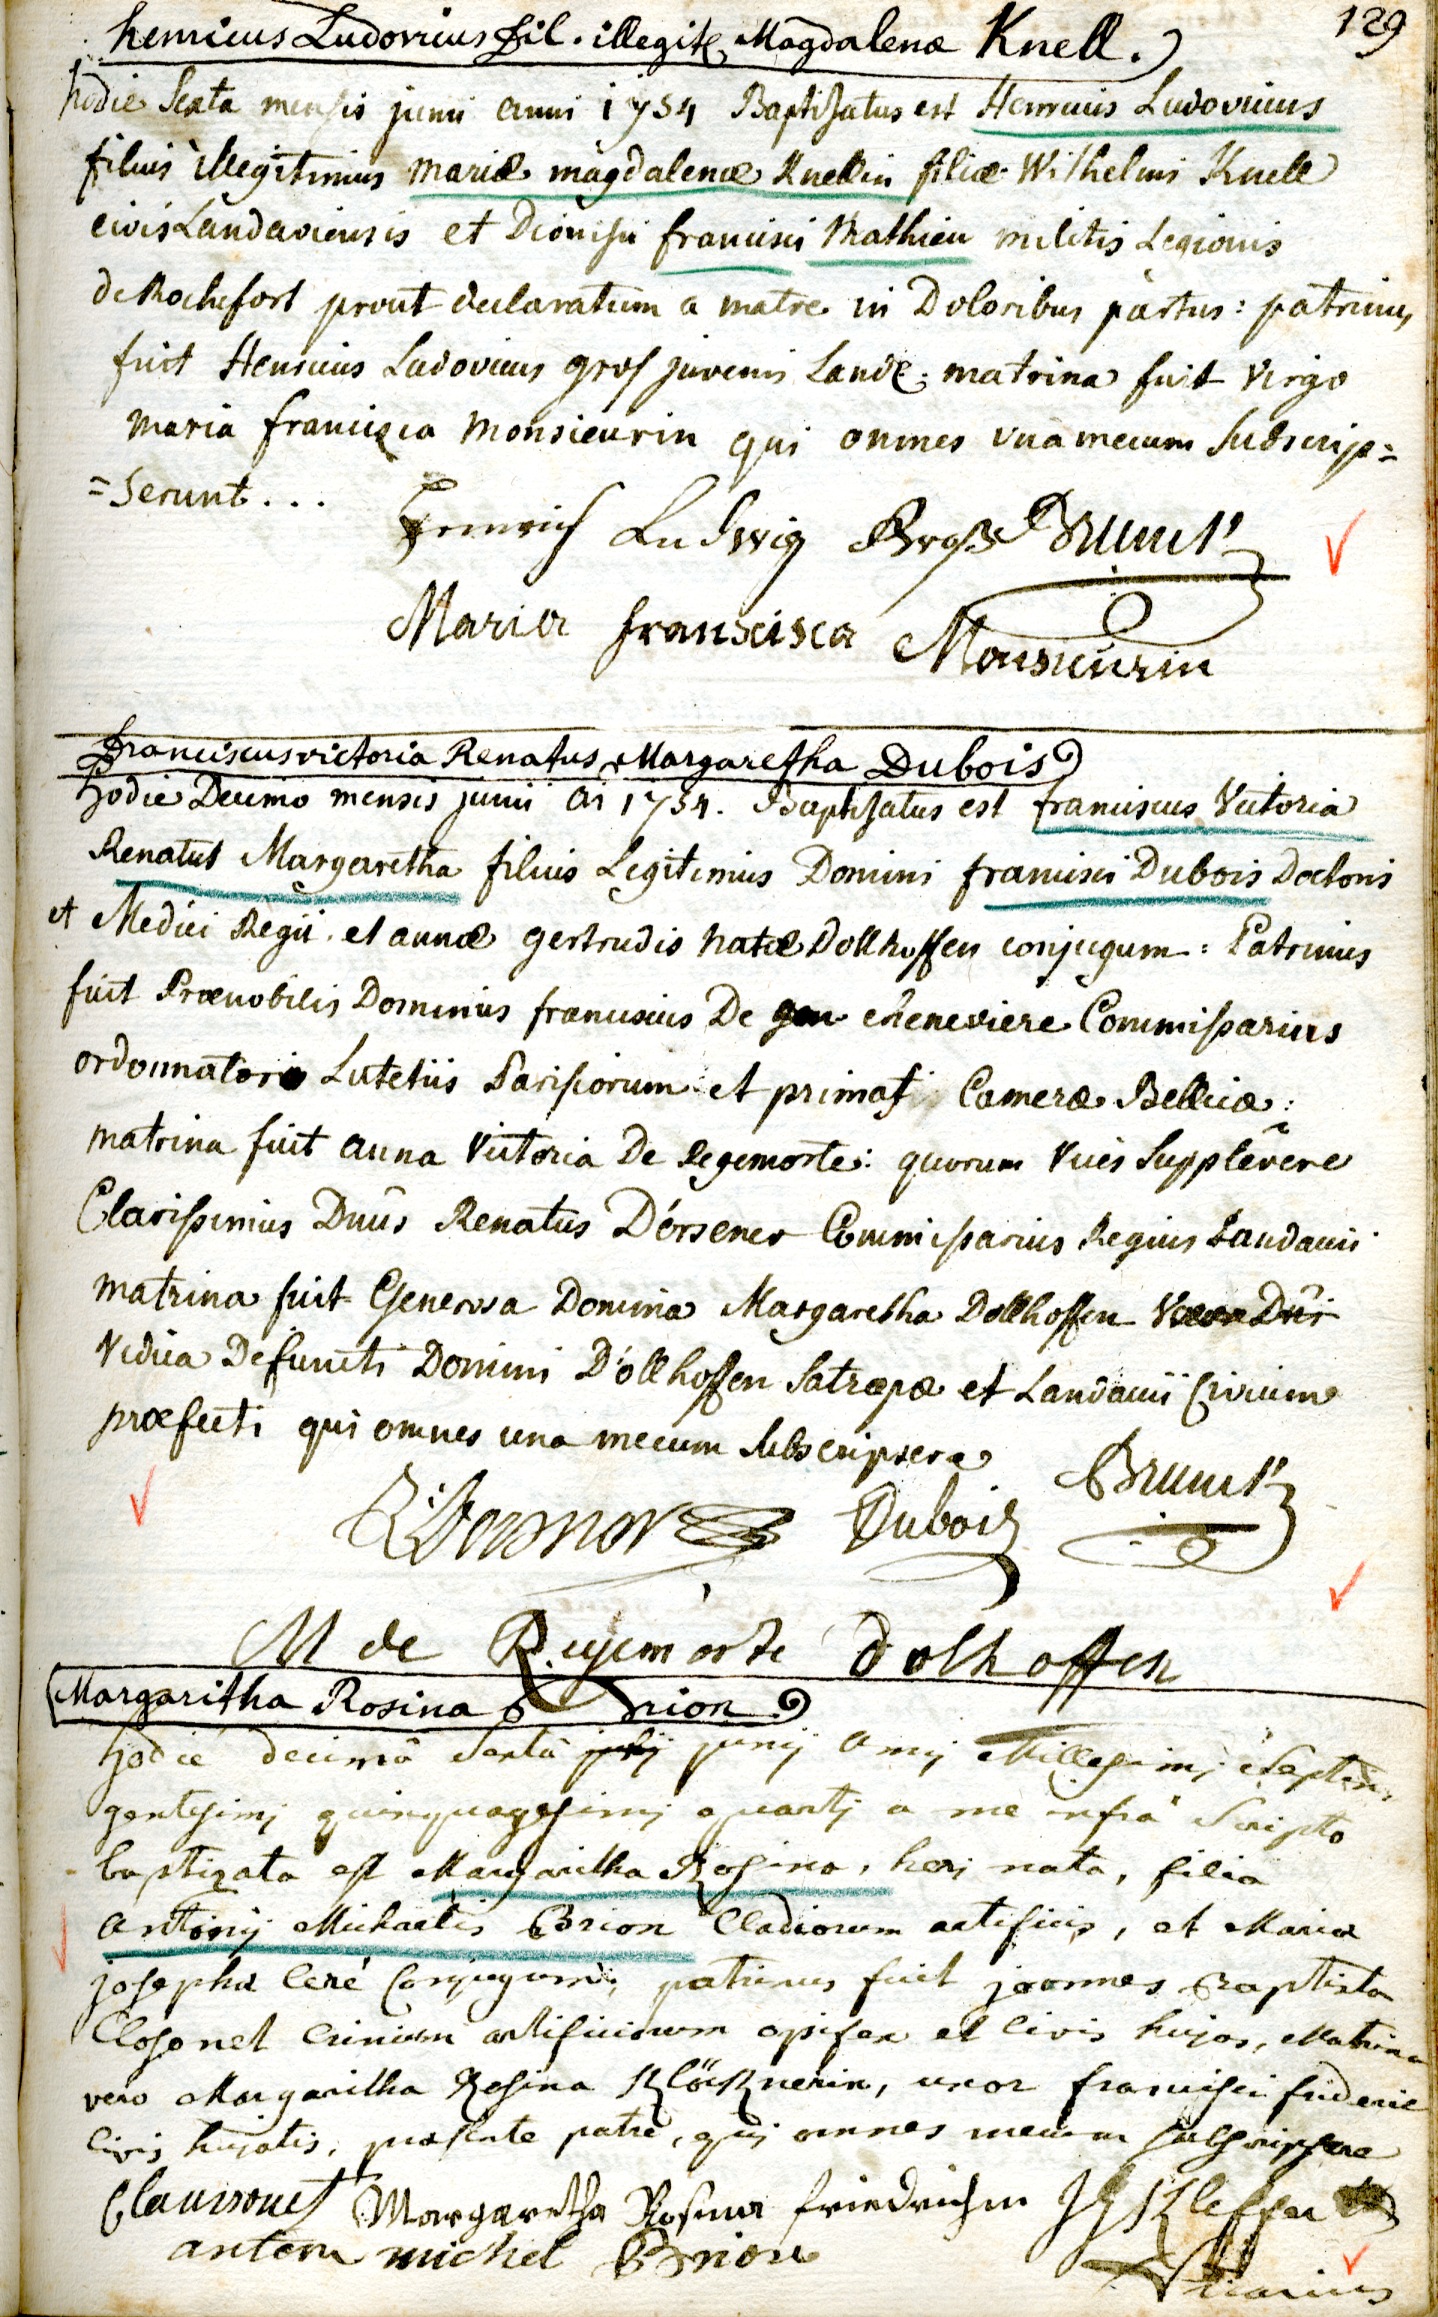 129
henricus Ludovicus fil. illegit. Magdalenæ Knell.
hodie Sexta mensis junii anni 1754 Baptisatus est Henricus Ludovicus
filius illegitimus mariæ magdalenæ Knellin filiæ Wilhelmi Knell
civis Landaviensis et Dionisii francisci Mathieu militis Legionis
de Rochefort prout declaratum a matre in Doloribus partus: patrinus
fuit Henricus Ludovicus gros juvenis Land: matrina fuit Virgo
maria francisca Monsieurin qui omnes una mecum Subscrip=
=Serunt...
Heinrich Ludwig Groß Brunck
Maria franscisca Monsieurin
Franciscus victoria Renatus Margaretha Dubois
hodie Decimo mensis junii ai 1754. Baptisatus est franciscus Victoria
Renatus Margaretha filius Legitimus Domini francisci Dubois Doctoris
et Medici Regii et annæ gertrudis natæ Dollhoffen conjugum: Patrinus
fuit Prænobilis Dominus franciscus De cheneviere Commissarius
ordonnatoris Lutetiis Parisiorum et primas Cameræ Bellicæ:
matrina fuit anna Victoria De Regemorte: quorum vices Supplevere
Clarissimus Dnus Renatus D'orsener Commissarius Regius Landavii
matrina fuit Generosa Domina Margaretha Dollhoffen
Vidua Defuncti Domini D'ollhoffen Satrapæ et Landavii Civium
præfecti qui omnes una mecum Subscripsere
Dubois Brunck
M de Regemorte dolhoffen
Margaritha Rosina Brion
hodie decimâ Sextâ junij annj Millesimj Septin
gentesimj quinquagesimj quartj a me infrà Scripto
baptizata est Margaritha Rosina, herj nata, filia
antonij Michaelis Brion Cladiorum artificis, et Maria
josepha Ceré Conjugum; patrinus fuit joannes Baptista
Closonet Crinium artificiorum opifex et Civis hujas, Matrina
vero Margaritha Rosina Klöcknerin, uxor francisci frideric
Civis hujatis, præsente patre, quj omnes mecum subscripsere
Claussonet Margaretha Rosina friedrichin
anton michel Brion